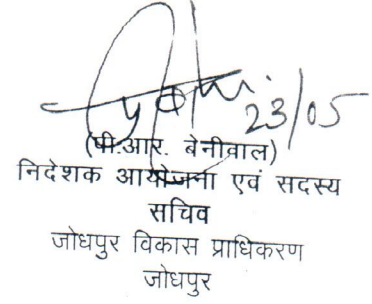 23/05
(पी.आर. बेनीवाल)
निदेशक आयोजना एवं सदस्य
सचिव
जोधपुर विकास प्राधिकरण
जोधपुर